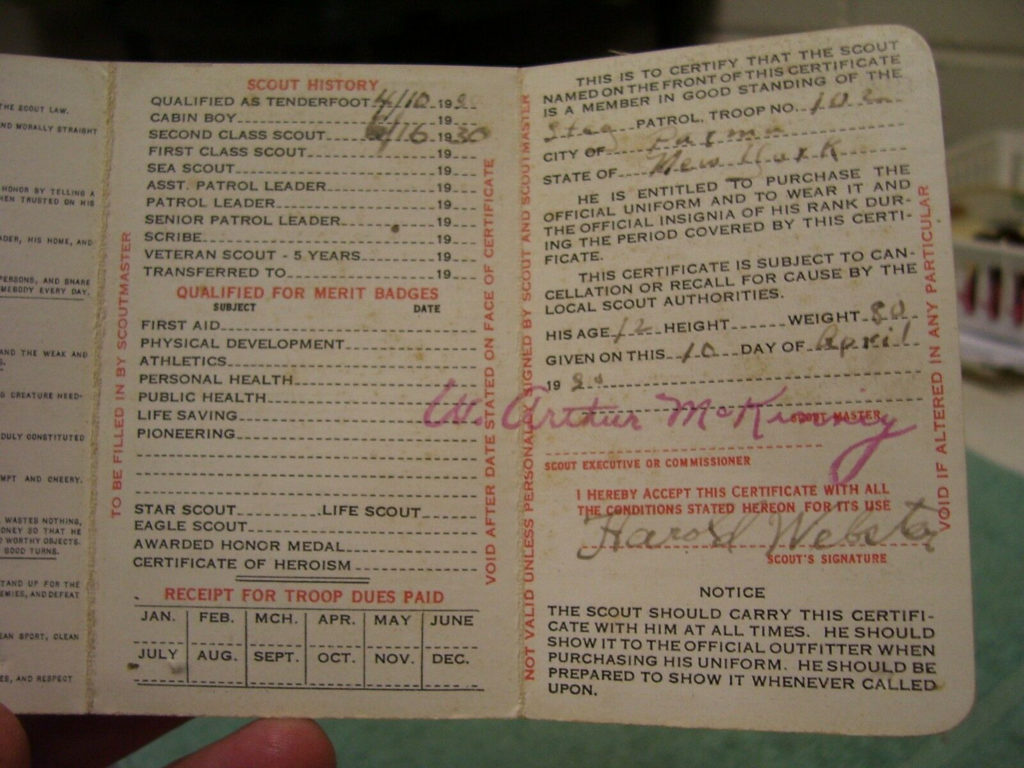 THE SCOUT LAW.
ND MORALLY STRAIGHT
HONOR BY TELLING A
HEN TRUSTED ON HIS
ADER, HIS HOME, AND
PERSONS, AND SHARE
MEBODY EVERY DAY.
AND THE WEAK AND
G CREATURE NEED-
DULY CONSTITUTED
MPT AND CHEERY.
WASTES NOTHING,
ONEY SO THAT HE
WORTHY OBJECTS.
GOOD TURNS.
TAND UP FOR THE
EMIES, AND DEFEAT
EAN SPORT, CLEAN
ES, AND RESPECT
TO BE FILLED IN BY SCOUTMASTER
SCOUT HISTORY
QUALIFIED AS TENDERFOOT 4/10 19
CABIN BOY 19
SECOND CLASS SCOUT /16 1930
FIRST CLASS SCOUT 19
SEA SCOUT 19
ASST. PATROL LEADER 19
PATROL LEADER 19
SENIOR PATROL LEADER 19
SCRIBE 19
VETERAN SCOUT - 5 YEARS 19
TRANSFERRED TO 19
QUALIFIED FOR MERIT BADGES
SUBJECT DATE
FIRST AID
PHYSICAL DEVELOPMENT
ATHLETICS
PERSONAL HEALTH
PUBLIC HEALTH
LIFE SAVING
PIONEERING
STAR SCOUT LIFE SCOUT
EAGLE SCOUT
AWARDED HONOR MEDAL
CERTIFICATE OF HEROISM
RECEIPT FOR TROOP DUES PAID
JAN. FEB. MCH. APR. MAY JUNE
JULY AUG. SEPT. OCT. NOV. DEC.
VOID AFTER DATE STATED ON FACE OF CERTIFICATE
NOT VALID UNLESS PERSONALLY SIGNED BY SCOUT AND SCOUTMASTER
THIS IS TO CERTIFY THAT THE SCOUT
NAMED ON THE FRONT OF THIS CERTIFICATE
IS A MEMBER IN GOOD STANDING OF THE
Stag PATROL, TROOP NO.
CITY OF Parma
STATE OF New York
HE IS ENTITLED TO PURCHASE THE
OFFICIAL UNIFORM AND TO WEAR IT AND
THE OFFICIAL INSIGNIA OF HIS RANK DUR-
ING THE PERIOD COVERED BY THIS CERTI-
FICATE.
THIS CERTIFICATE IS SUBJECT TO CAN-
CELLATION OR RECALL FOR CAUSE BY THE
LOCAL SCOUT AUTHORITIES.
HIS AGE 12 HEIGHT WEIGHT 80
GIVEN ON THIS 10 DAY OF April
19
W. Arthur McKinney
SCOUT MASTER
SCOUT EXECUTIVE OR COMMISSIONER
I HEREBY ACCEPT THIS CERTIFICATE WITH ALL
THE CONDITIONS STATED HEREON FOR ITS USE
Harold Webster
SCOUT'S SIGNATURE
NOTICE
THE SCOUT SHOULD CARRY THIS CERTIFI-
CATE WITH HIM AT ALL TIMES. HE SHOULD
SHOW IT TO THE OFFICIAL OUTFITTER WHEN
PURCHASING HIS UNIFORM. HE SHOULD BE
PREPARED TO SHOW IT WHENEVER CALLED
UPON.
VOID IF ALTERED IN ANY PARTICULAR